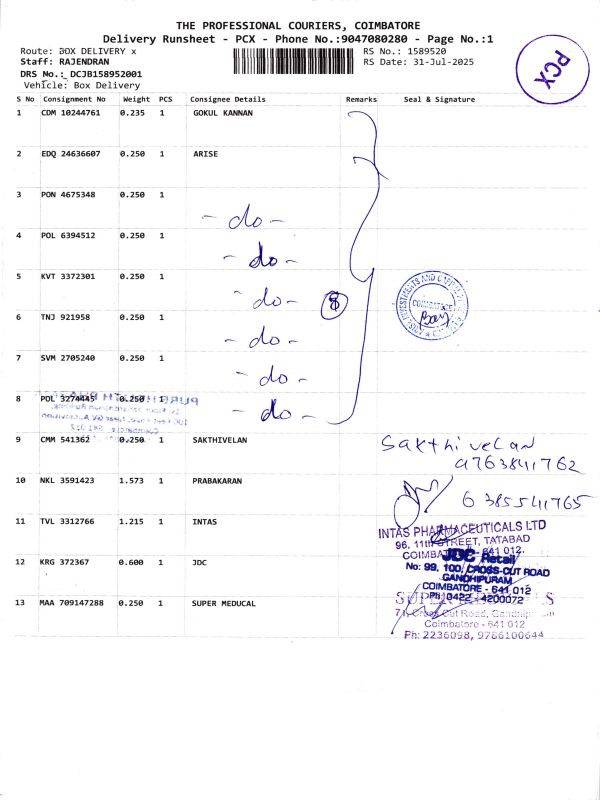 THE PROFESSIONAL COURIERS, COIMBATORE
Delivery Runsheet - PCX - Phone No.:9047080280 - Page No.:1
Route: BOX DELIVERY x
RS No.: 1589520
Staff: RAJENDRAN
RS Date: 31-Jul-2025
DRS No.: DCJB158952001
Vehicle: Box Delivery
PCX
S No Consignment No Weight PCS Consignee Details Remarks Seal & Signature
1 CDM 10244761 0.235 1 GOKUL KANNAN
2 EDQ 24636607 0.250 1 ARISE
3 PON 4675348 0.250 1
- do -
4 POL 6394512 0.250 1
- do -
5 KVT 3372301 0.250 1
- do - 8
6 TNJ 921958 0.250 1
- do -
7 SVM 2705240 0.250 1
- do -
8 POL 3274445 0.250 1
- do -
COIMBATORE
9 CMM 541362 0.250 1 SAKTHIVELAN
Sakthivelan
9763841762
10 NKL 3591423 1.573 1 PRABAKARAN
6385541765
11 TVL 3312766 1.215 1 INTAS
INTAS PHARMACEUTICALS LTD
96, 11th STREET, TATABAD
COIMBATORE - 641 012.
12 KRG 372367 0.600 1 JDC
JDC Retail
No: 99, 100, CROSS-CUT ROAD
GANDHIPURAM
COIMBATORE - 641 012
Ph: 0422 - 4200072
13 MAA 709147288 0.250 1 SUPER MEDUCAL
Cross Cut Road,
Coimbatore - 641 012
Ph: 2236098, 9786100644